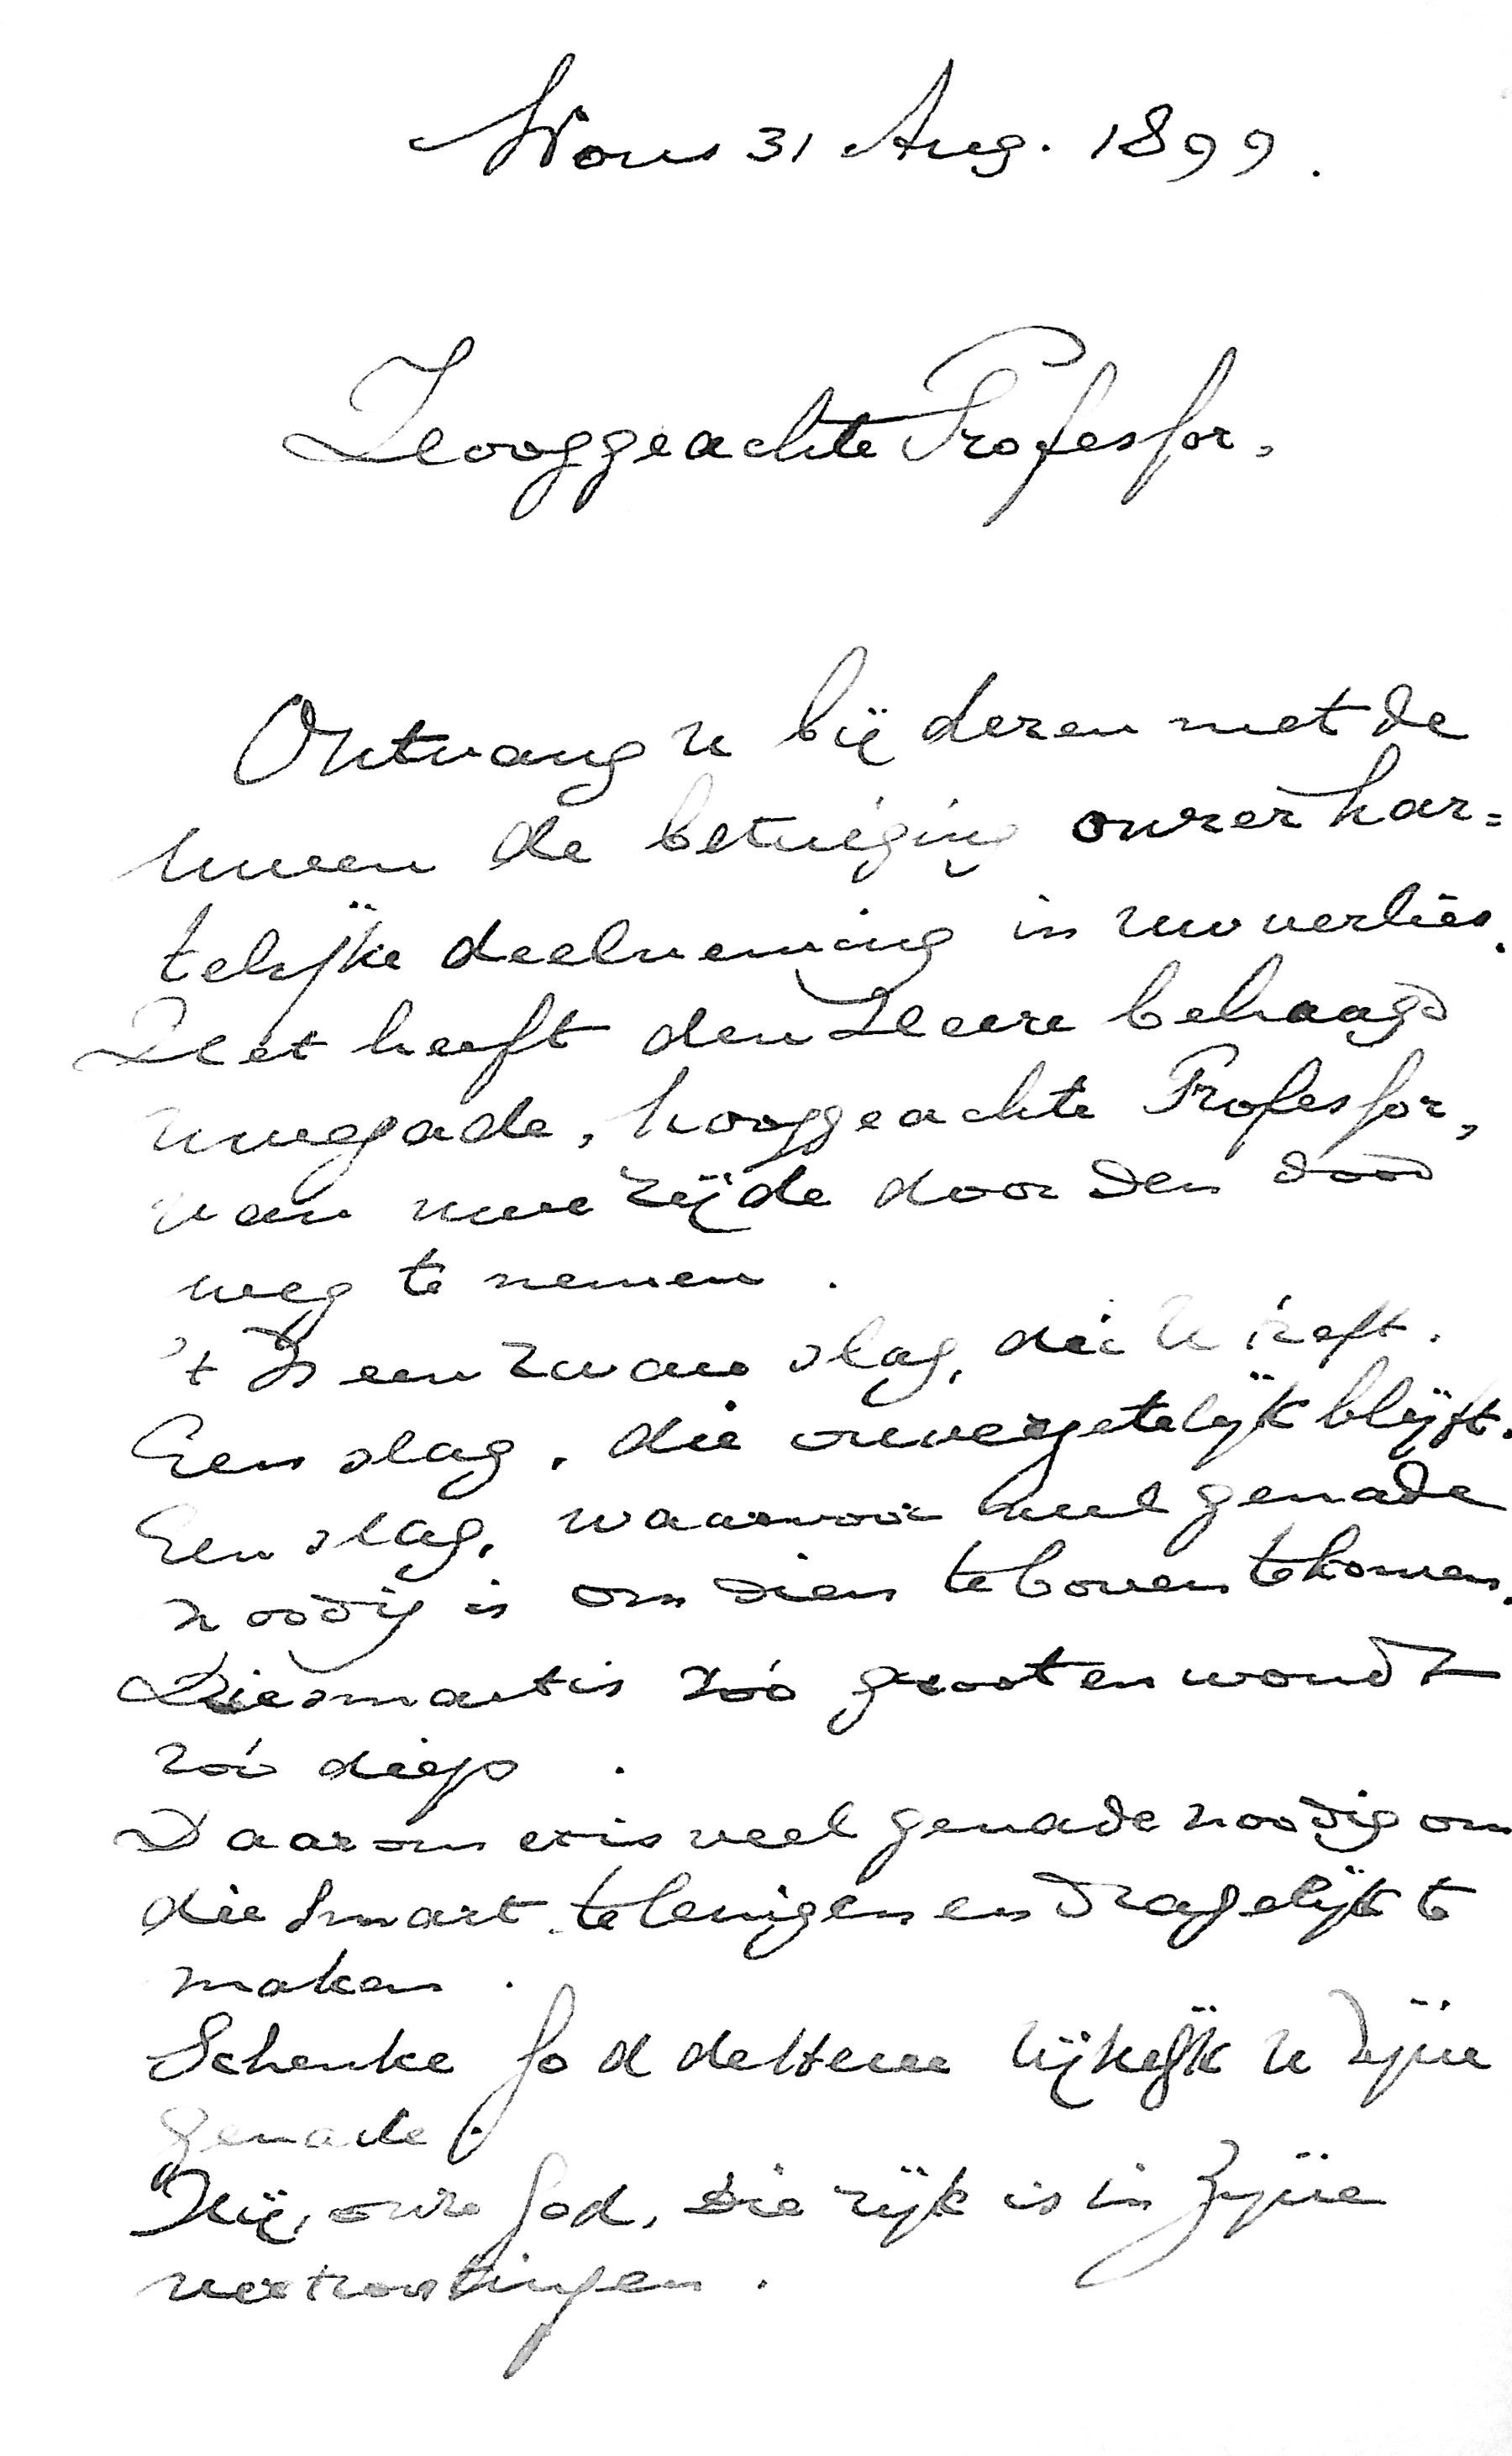 Wons 31 Aug. 1899.
Hooggeachte Professor,
Ontvang u bij dezen met de
uwen de betuiging onzer har=
telijke deelneming in uw verlies.
Het heeft den Heere behaagd
uwe gade, hooggeachte Professor,
van uwe zijde door den dood
weg te nemen.
't Is een zware slag, die U treft.
Een slag, die onvergetelijk blijft.
Een slag, waarvoor veel genade
noodig is om dien te boven te komen.
Die smart is zóó groot en wondt
zóó diep.
Daarom er is veel genade noodig om
die smart te lenigen en dragelijk te
maken.
Schenke God de Heere rijkelijk U Zijne
genade.
Hij, onze God, die rijk is in Zijne
vertroostingen.